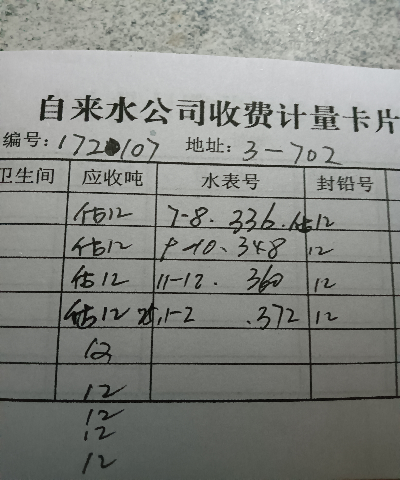 自来水公司收费计量卡片
编号: 172107 地址: 3-702
卫生间 应收吨 水表号 封铅号
估12 7-8. 336. 估12
估12 9-10. 348 12
估12 11-12. 360 12
估12 1-2 .372 12
12
12
12
12
12